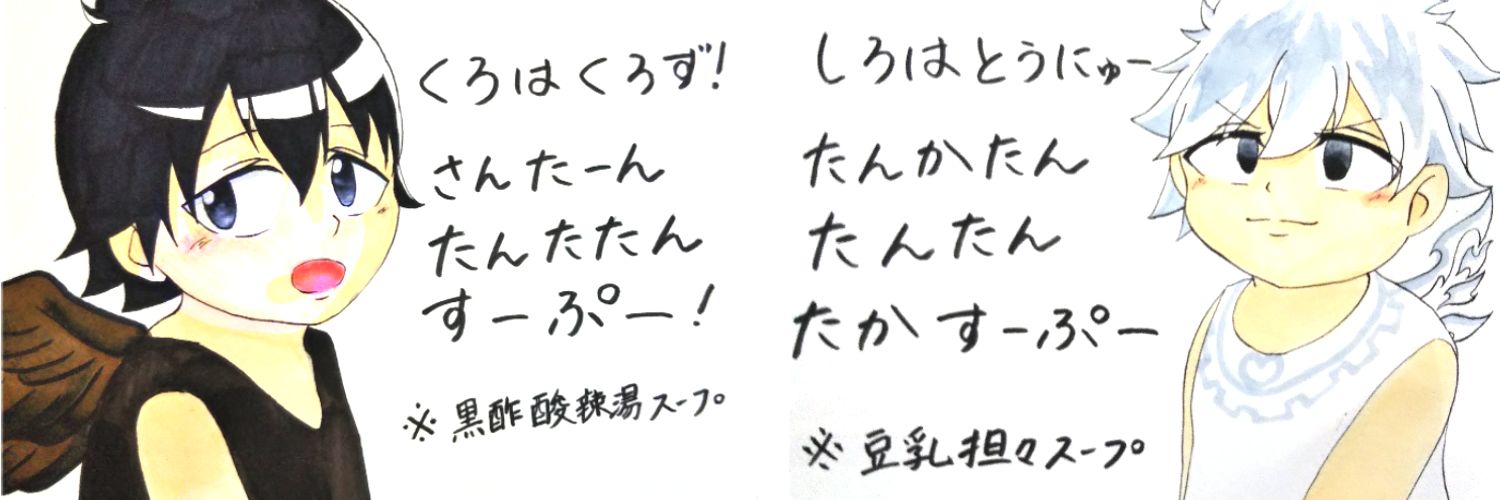 くろはくろず!
さんたーん
たんたたん
すーぷー!
※黒酢酸辣湯スープ
しろはとうにゅー
たんかたん
たんたん
たかすーぷー
※豆乳担々スープ